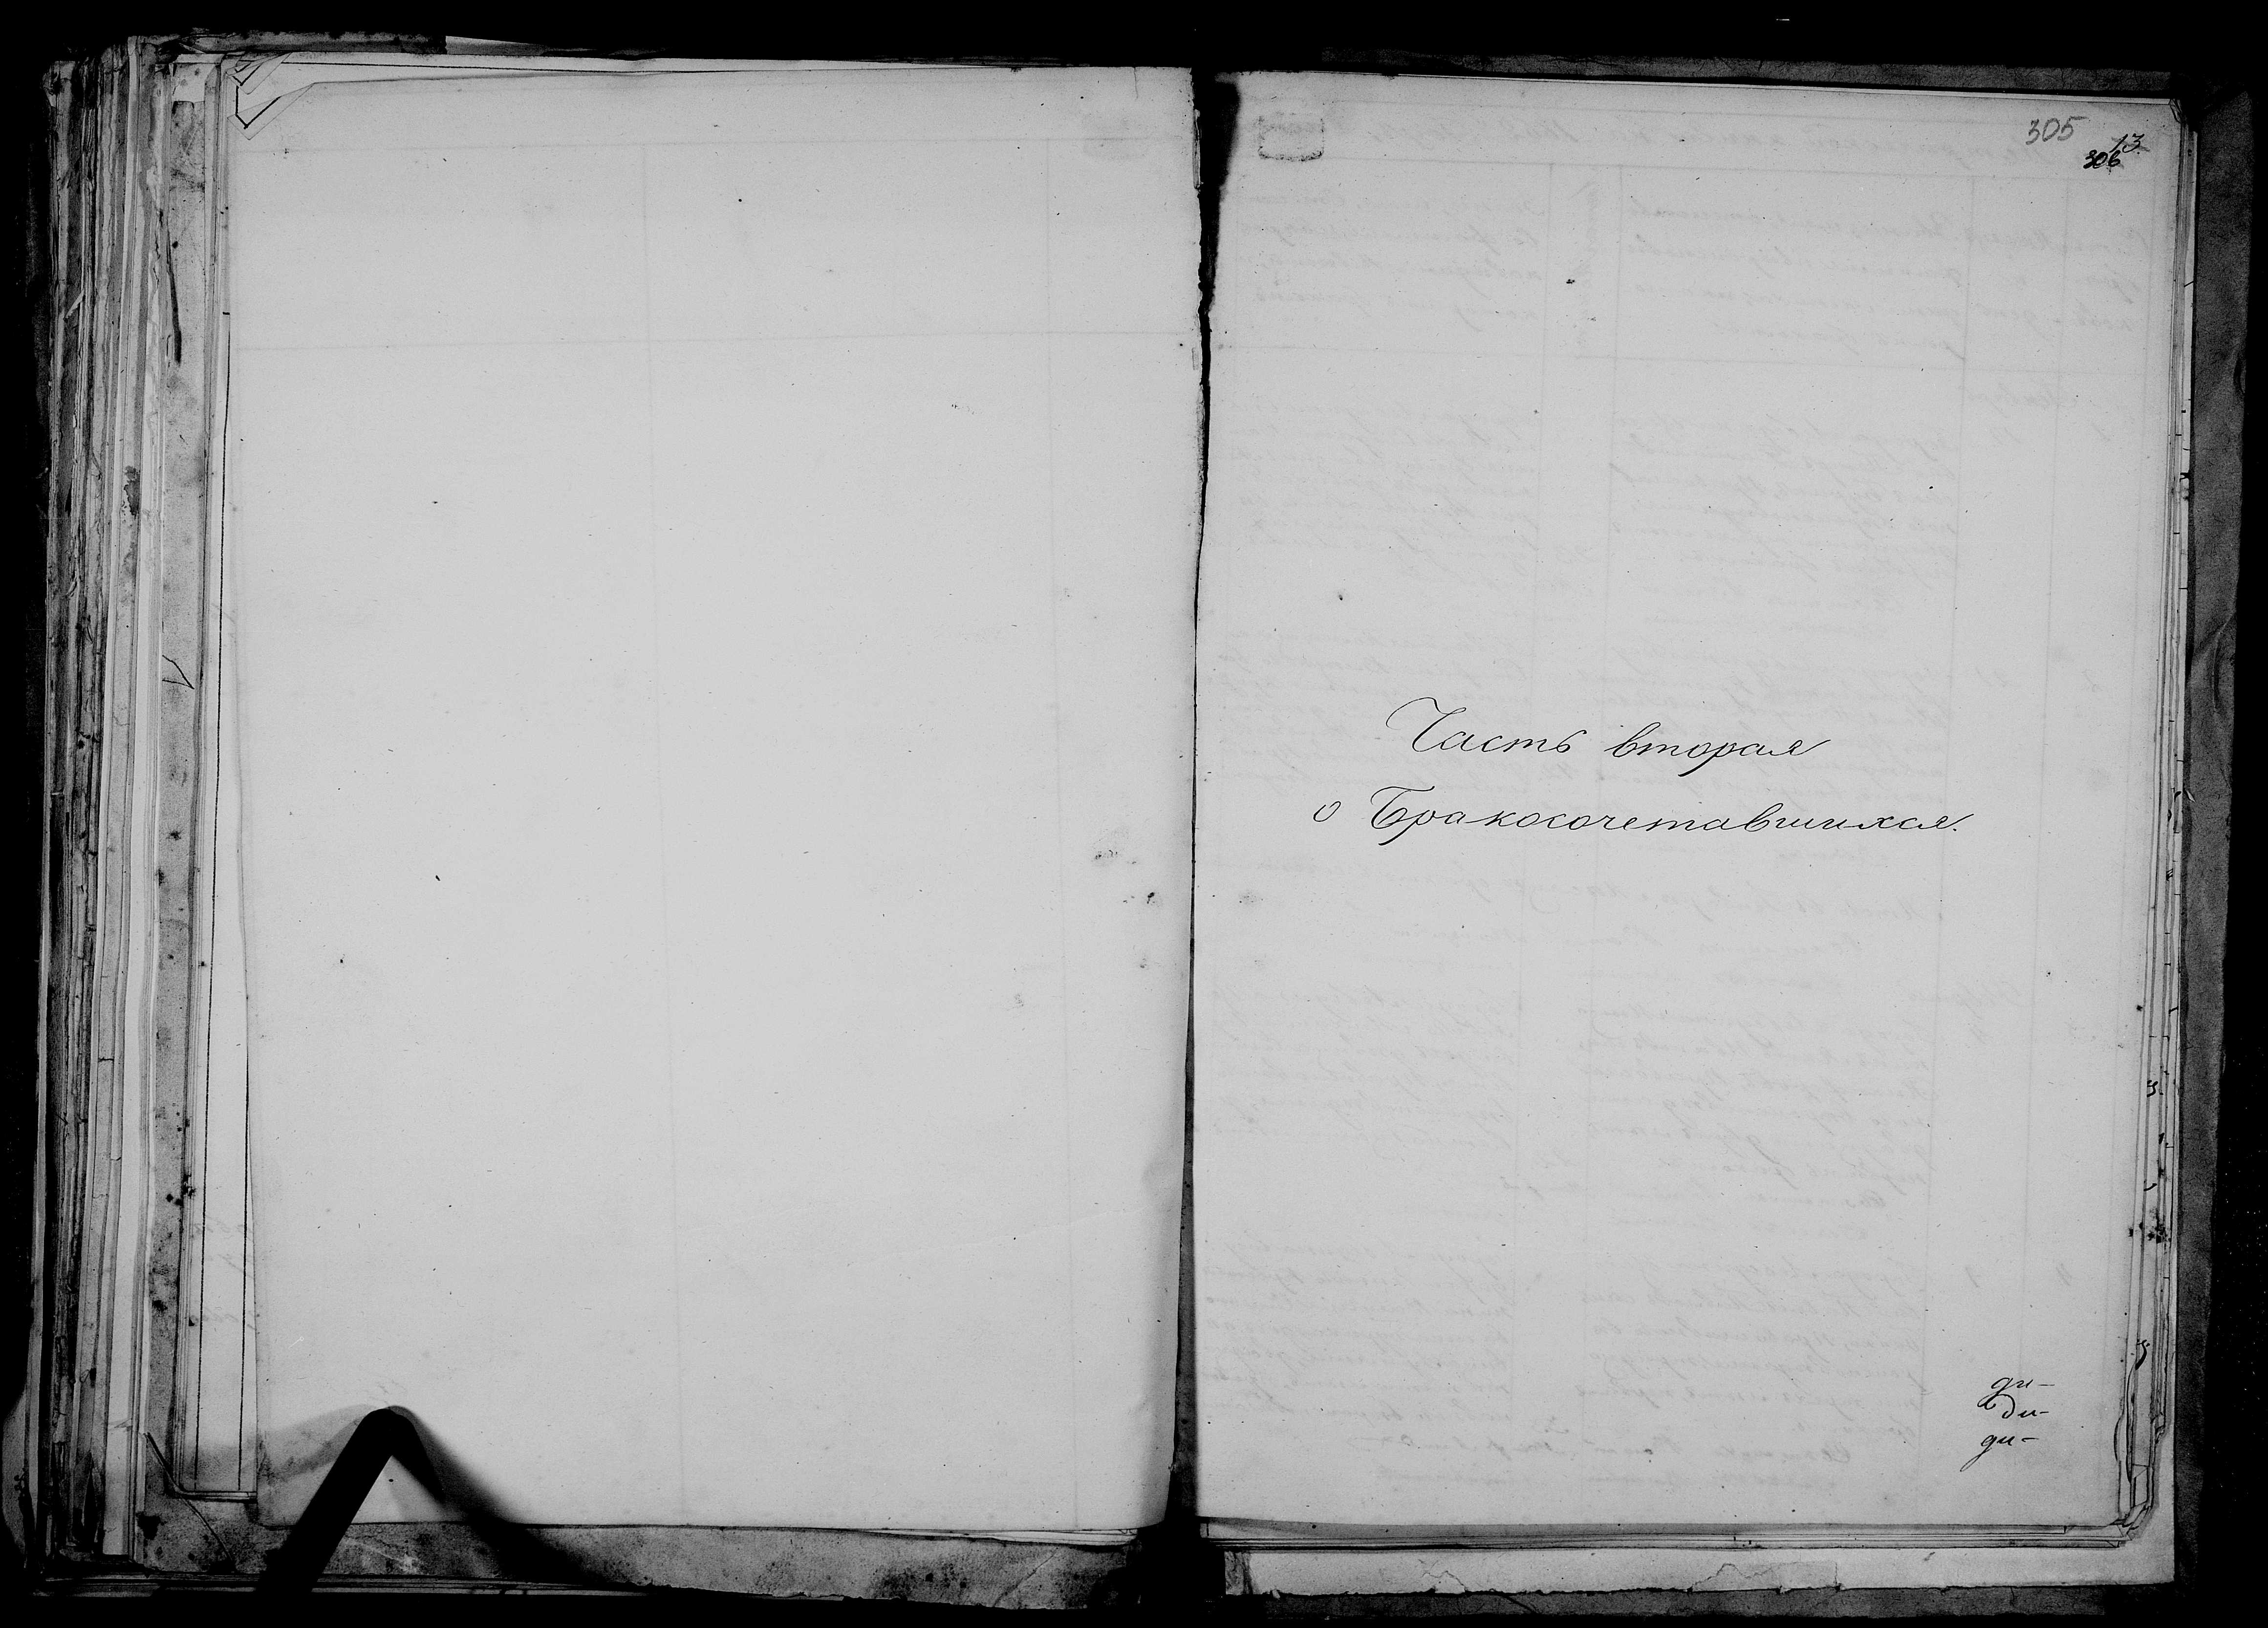 305
13.
306
Часть вторая
о Бракосочетавшихся.
ди-
ди-
ди-